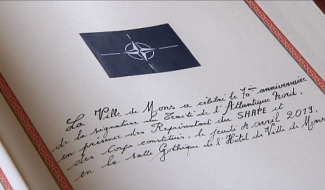 La Ville de Mons a célébré le 70ème anniversaire
de la signature du Traité de l'Atlantique Nord,
en présence des Représentants du SHAPE et
des Corps constitués, le jeudi 4 avril 2019,
en la salle Gothique de l'Hôtel de Ville de Mons